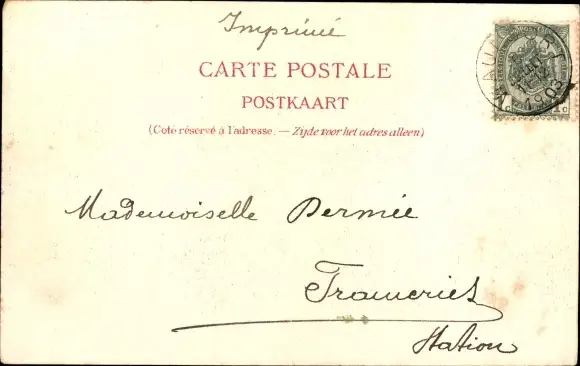 Imprimé
CARTE POSTALE
POSTKAART
(Coté réservé à l'adresse. — Zijde voor het adres alleen)
Mademoiselle Dermiée
Frameries
Station
1903
1 C